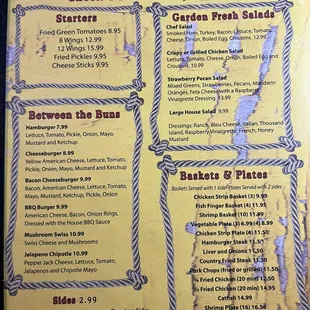 Starters
Fried Green Tomatoes 8.95
8 Wings 12.99
12 Wings 15.99
Fried Pickles 9.95
Cheese Sticks 9.95
Between the Buns
Hamburger 7.99
Lettuce, Tomato, Pickle, Onion, Mayo,
Mustard and Ketchup
Cheeseburger 8.99
Yellow American Cheese, Lettuce, Tomato,
Pickle, Onion, Mayo, Mustard, Ketchup
Bacon Cheeseburger 9.99
Bacon, American Cheese, Lettuce, Tomato,
Mayo, Mustard, Ketchup, Pickle, Onion
BBQ Burger 9.99
American Cheese, Bacon, Onion Rings,
Dressed with the House BBQ Sauce
Mushroom Swiss 10.99
Swiss Cheese and Mushrooms
Jalapeno Chipotle 10.99
Pepper Jack Cheese, Lettuce, Tomato,
Jalapenos and Chipotle Mayo
Sides 2.99
Garden Fresh Salads
Chef Salad
Smoked Ham, Turkey, Bacon, Lettuce, Tomato,
Cheese, Onion, Boiled Egg, Croutons 12.99
Crispy or Grilled Chicken Salad
Lettuce, Tomato, Cheese, Onion, Boiled Egg,
Croutons 10.99
Strawberry Pecan Salad
Mixed Greens, Strawberries, Pecans, Mandarin
Oranges, Feta Cheese with a Raspberry
Vinaigrette Dressing 13.99
Large House Salad 9.99
Dressings: Ranch, Bleu Cheese, Italian, Thousand
Island, Raspberry Vinaigrette, French, Honey
Mustard
Baskets & Plates
Baskets Served with 1 side Plates Served with 2 sides
Chicken Strip Basket (3) 9.99
Fish Finger Basket (4) 11.95
Shrimp Basket (10) 11.99
Vegetable Plate (3) 6.99 (4) 8.99
Chicken Strip Plate (4) 11.50
Hamburger Steak 11.95
Liver and Onions 11.50
Country Fried Steak 11.50
Pork Chops (fried or grilled) 11.50
Fried Chicken (20 min) 12.50
Fried Chicken (20 min) 14.95
Catfish 14.99
Shrimp Plate (16) 16.50